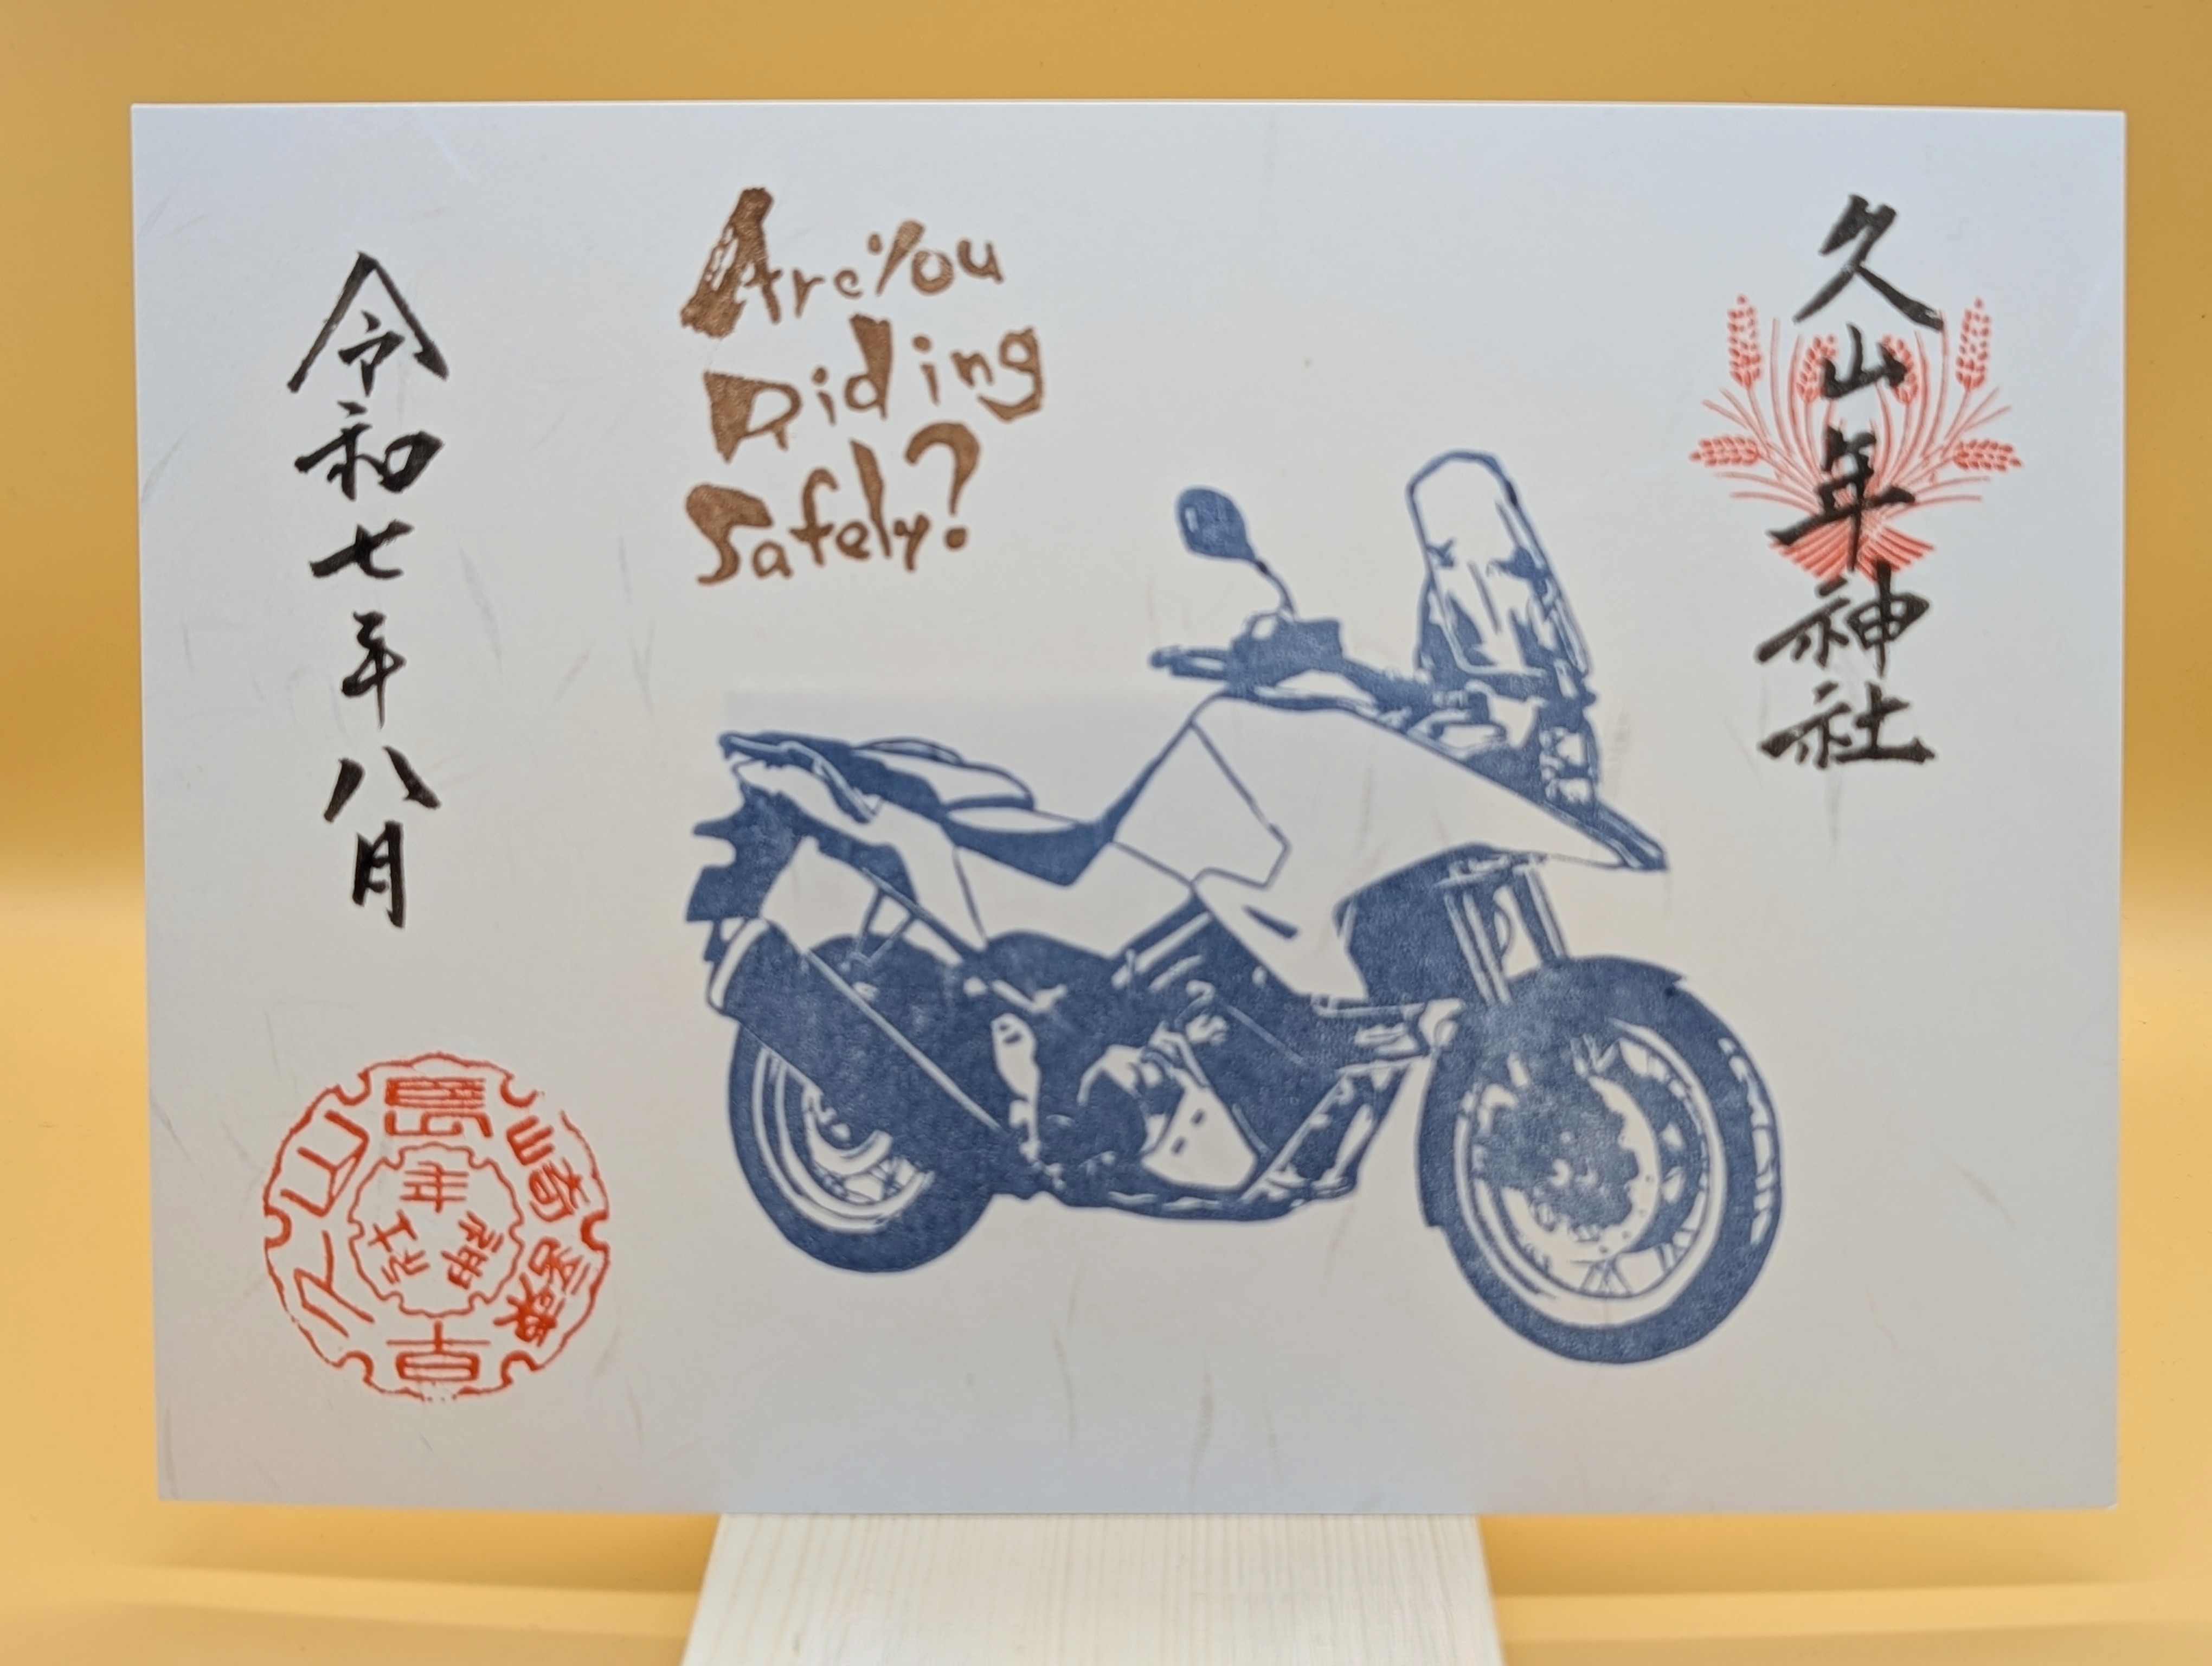 久山年神社
Are You
Riding
Safely?
令和七年八月
長崎
諫早
久山
年神社